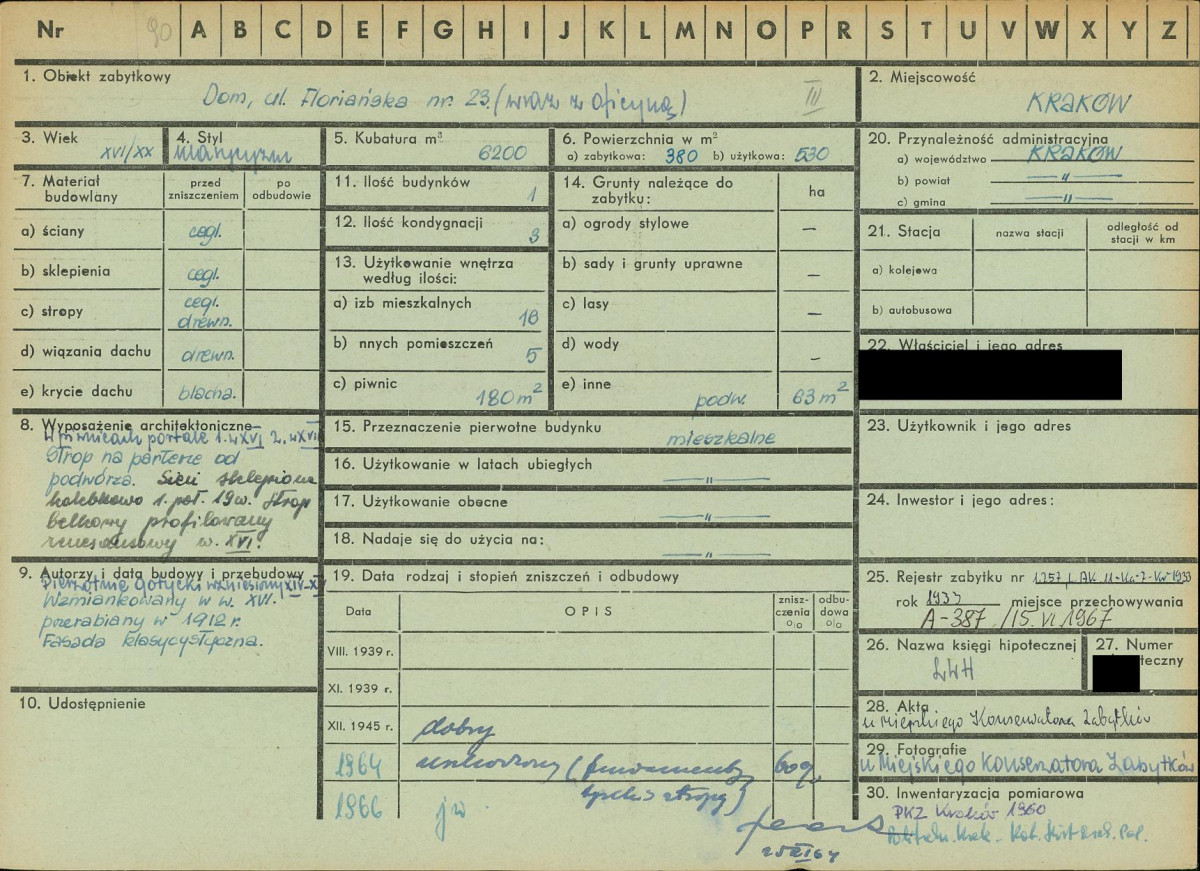 Nr 90 A B C D E F G H I J K L M N O P R S T U V W X Y Z
1. Obiekt zabytkowy
Dom, ul. Floriańska nr. 23. (wraz z oficyną) III
2. Miejscowość
KRAKÓW
3. Wiek
XVI/XX
4. Styl
klasycyzm
5. Kubatura m³
6200
6. Powierzchnia w m²
a) zabytkowa: 380 b) użytkowa: 530
20. Przynależność administracyjna
a) województwo KRAKÓW
b) powiat —〃—
c) gmina —〃—
7. Materiał budowlany
przed zniszczeniem
po odbudowie
a) ściany cegl.
b) sklepienia cegl.
c) stropy cegl. drewn.
d) wiązania dachu drewn.
e) krycie dachu blacha.
11. Ilość budynków 1
12. Ilość kondygnacji 3
13. Użytkowanie wnętrza
według ilości:
a) izb mieszkalnych 18
b) nnych pomieszczeń 5
c) piwnic 180 m²
14. Grunty należące do
zabytku:
ha
a) ogrody stylowe —
b) sady i grunty uprawne —
c) lasy —
d) wody —
e) inne podw. 63 m²
21. Stacja
nazwa stacji
odległość od
stacji w km
a) kolejowa
b) autobusowa
22. Właściciel i jego adres
8. Wyposażenie architektoniczne
W piwnicach portale 1. w XVI 2. w XVII
Strop na parterze od
podwórza. Sień sklepiona
kolebkowo 1. poł. 19 w. Strop
belkowy profilowany
renesansowy w. XVI.
15. Przeznaczenie pierwotne budynku
mieszkalne
16. Użytkowanie w latach ubiegłych
—〃—
17. Użytkowanie obecne
—〃—
18. Nadaje się do użycia na:
—〃—
23. Użytkownik i jego adres
24. Inwestor i jego adres:
9. Autorzy i data budowy i przebudowy
Pierwotnie gotycki wzniesiony XIV-XV
Wzmiankowany w w. XVI.
przerabiany w 1912 r.
Fasada klasycystyczna.
10. Udostępnienie
19. Data rodzaj i stopień zniszczeń i odbudowy
Data
OPIS
znisz-
czenia
%
odbu-
dowa
%
VIII. 1939 r.
XI. 1939 r.
XII. 1945 r. dobry
1964 uszkodzony (fundamenty, 60%
stropy)
1966 jw.
25. Rejestr zabytku nr
rok 1933 miejsce przechowywania
A-387 /15. VI 1967
26. Nazwa księgi hipotecznej
LWH
27. Numer
teczny
28. Akta
u Miejskiego Konserwatora Zabytków
29. Fotografie
u Miejskiego Konserwatora Zabytków
30. Inwentaryzacja pomiarowa
PKZ Kraków 1960